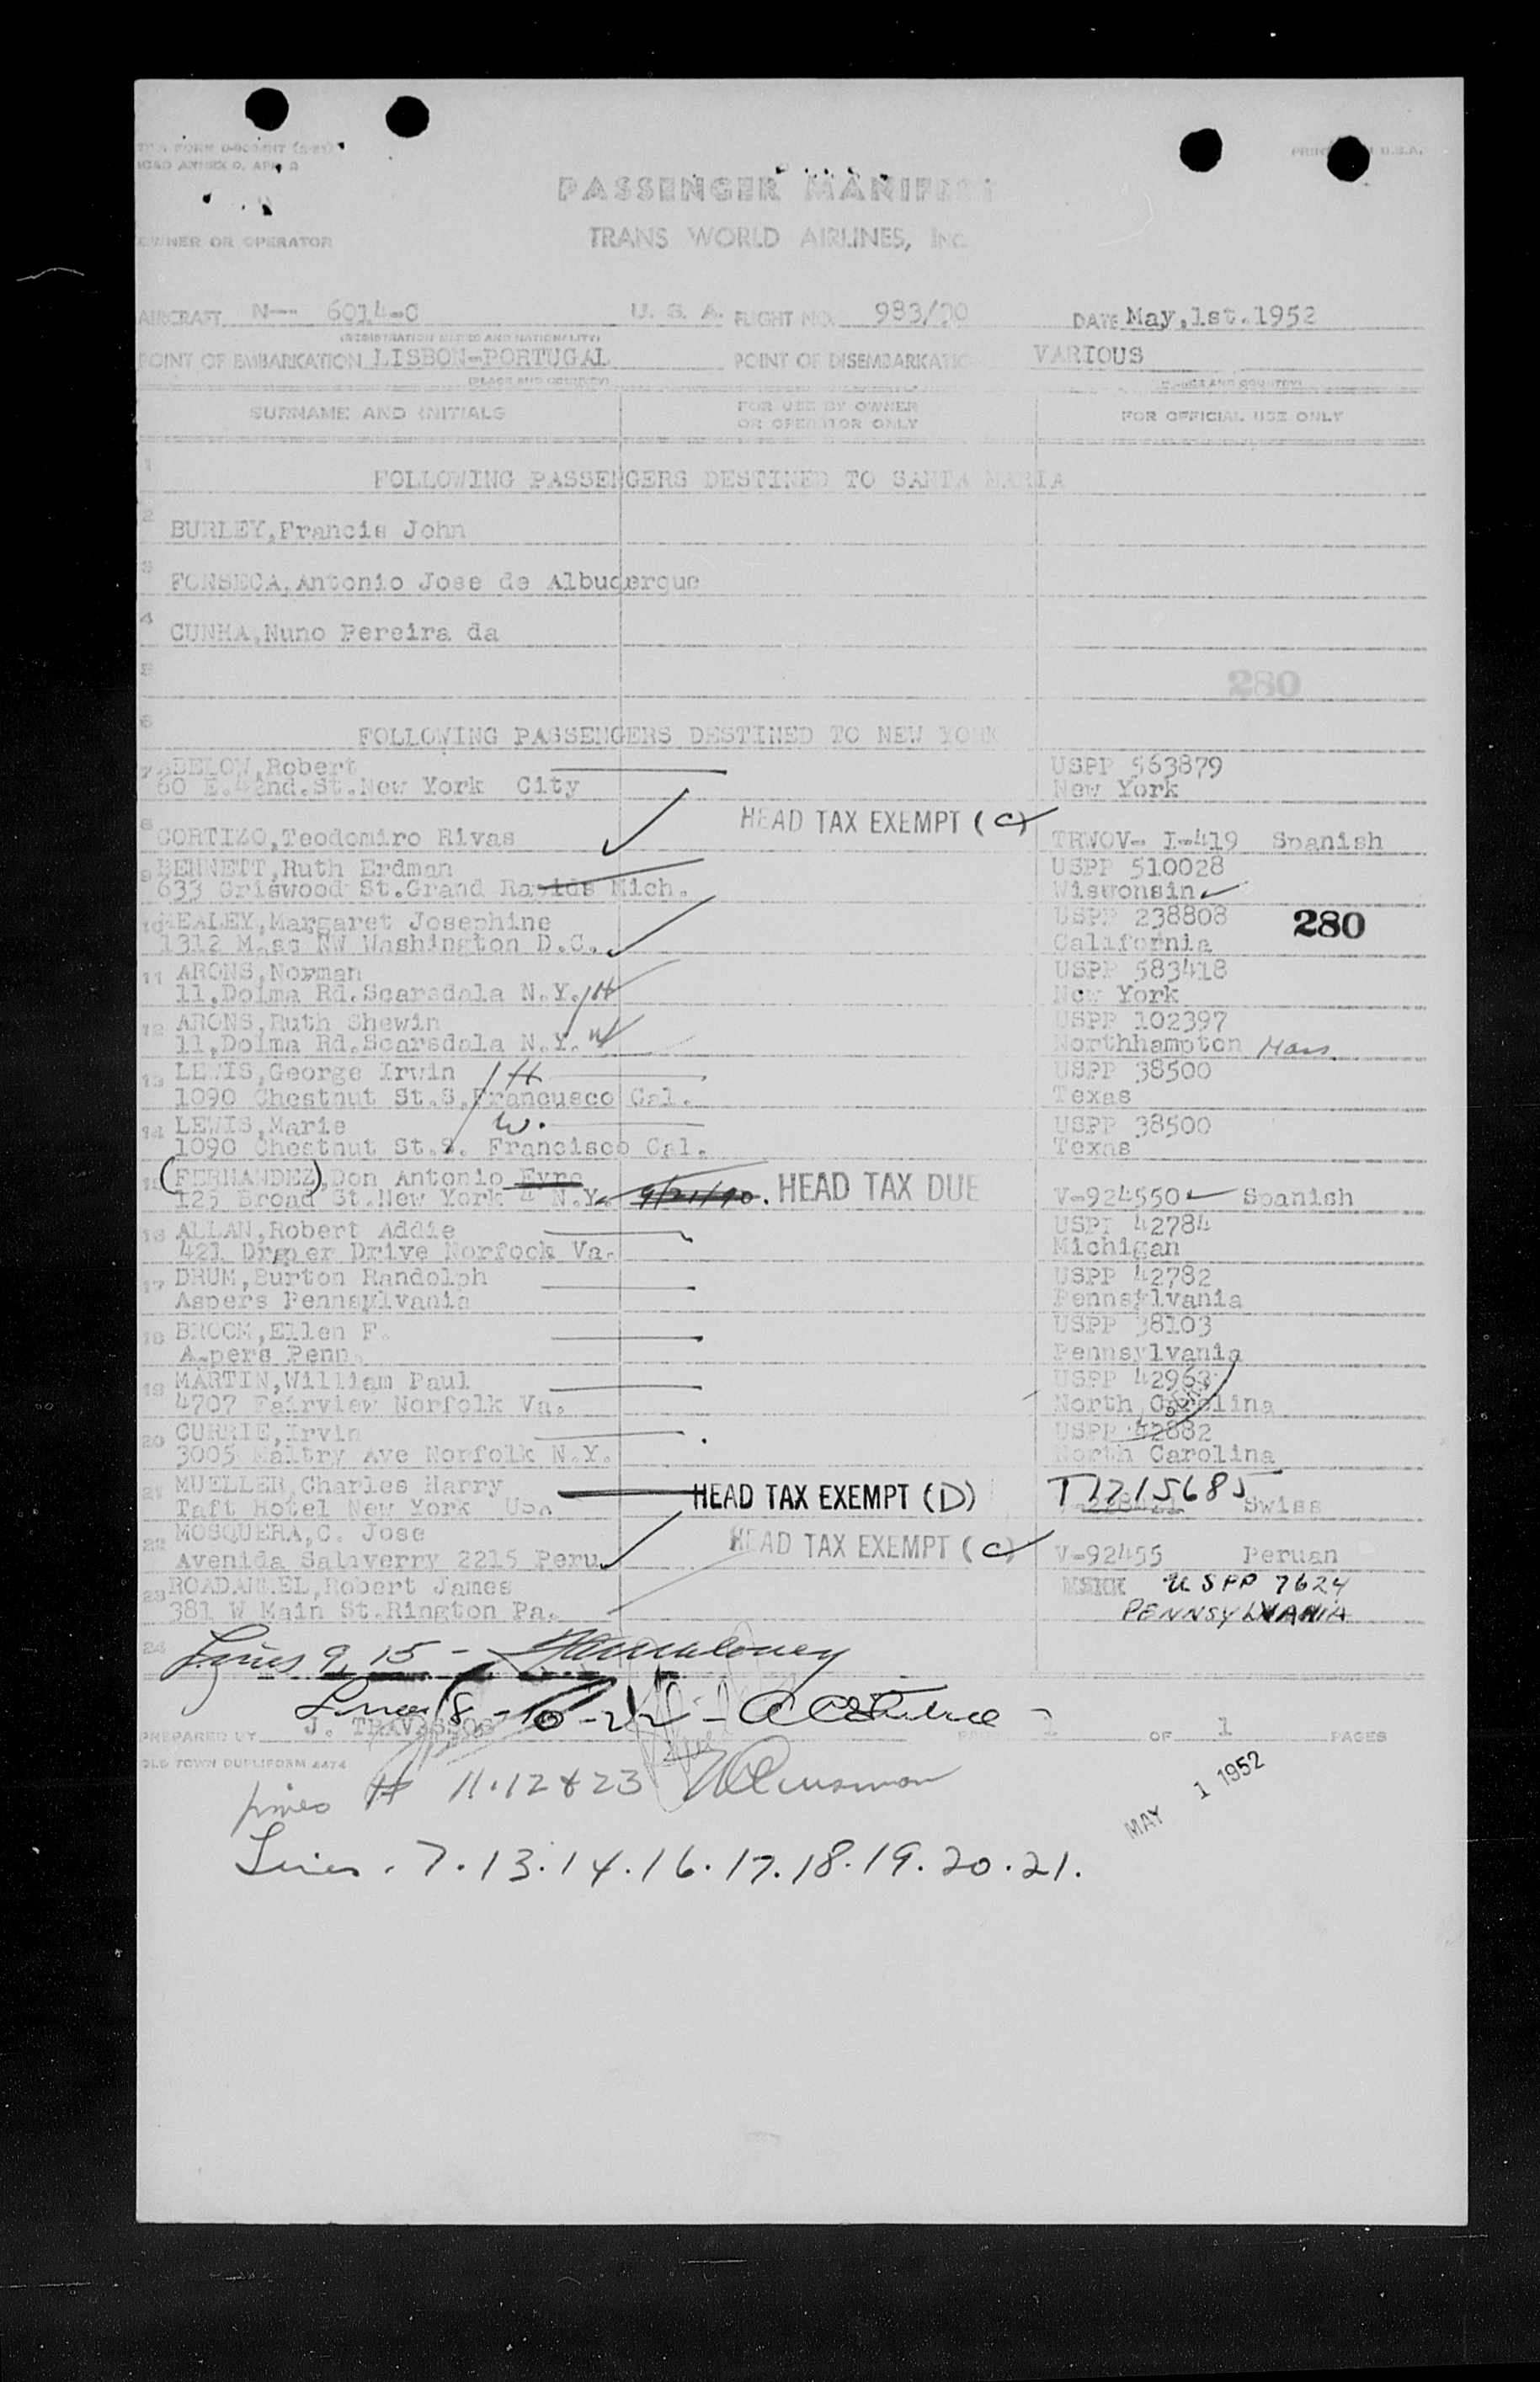 PRINTED IN U.S.A.
PASSENGER MANIFEST
OWNER OR OPERATOR
TRANS WORLD AIRLINES, INC.
AIRCRAFT N-- 6014-C U. S. A. FLIGHT NO. 983/30 DATE May,1st.1952
(REGISTRATION MARKS AND NATIONALITY)
POINT OF EMBARKATION LISBON-PORTUGAL POINT OF DISEMBARKATION VARIOUS
(PLACE AND COUNTRY) (PLACE AND COUNTRY)
SURNAME AND INITIALS FOR USE BY OWNER OR OPERATOR ONLY FOR OFFICIAL USE ONLY
1 FOLLOWING PASSENGERS DESTINED TO SANTA MARIA
2 BURLEY,Francis John
3 FONSECA,Antonio Jose de Albuquerque
4 CUNHA,Nuno Pereira da
5
280
6 FOLLOWING PASSENGERS DESTINED TO NEW YORK
7 ABELOW,Robert USPP 563879
60 E.42nd.St.New York City New York
HEAD TAX EXEMPT (C)
8 CORTIZO,Teodomiro Rivas TRWOV- I-419 Spanish
9 BENNETT,Ruth Erdman USPP 510028
633 Griswood St.Grand Rapids Mich. Wisvonsin
10 HEALEY,Margaret Josephine USPP 238808 280
1312 Mass NW Washington D.C. California
11 ARONS,Norman USPP 583418
11,Dolma Rd.Scarsdala N.Y. H New York
12 ARONS,Ruth Shewin USPP 102397
11,Dolma Rd.Scarsdala N.Y. W Northhampton Mass
13 LEWIS,George Irwin H USPP 38500
1090 Chestnut St.S.Francusco Cal. Texas
14 LEWIS,Marie W. USPP 38500
1090 Chestnut St.S. Francisco Cal. Texas
15 (FERNANDEZ),Don Antonio Eyre HEAD TAX DUE
125 Broad St.New York 4 N.Y. V-924550 Spanish
16 ALLAN,Robert Addie USPP 42784
421 Draper Drive Norfock Va. Michigan
17 DRUM,Burton Randolph USPP 42782
Aspers Pennsylvania Pennsylvania
18 BROOM,Ellen F. USPP 38103
Aspers Penn. Pennsylvania
19 MARTIN,William Paul USPP 42963
4707 Fairview Norfolk Va. North Carolina
20 CURRIE,Irvin USPP 42882
3005 Maltry Ave Norfolk N.Y. North Carolina
21 MUELLER,Charles Harry HEAD TAX EXEMPT (D) T1715685
Taft Hotel New York Usa Swiss
22 MOSQUERA,C. Jose HEAD TAX EXEMPT (C)
Avenida Salaverry 2215 Peru V-92455 Peruan
23 ROADARMEL,Robert James USPP 7624
381 W Main St.Rington Pa. PENNSYLVANIA
24 Lines 9, 15 -
Lines 8 - 10 - 22 -
PREPARED BY J. TRAVASSOS PAGE 1 OF 1 PAGES
OLD TOWN DUPLIFORM 4474
Lines # 11.12 & 23
MAY 1 1952
Lines . 7.13.14.16.17.18.19.20.21.